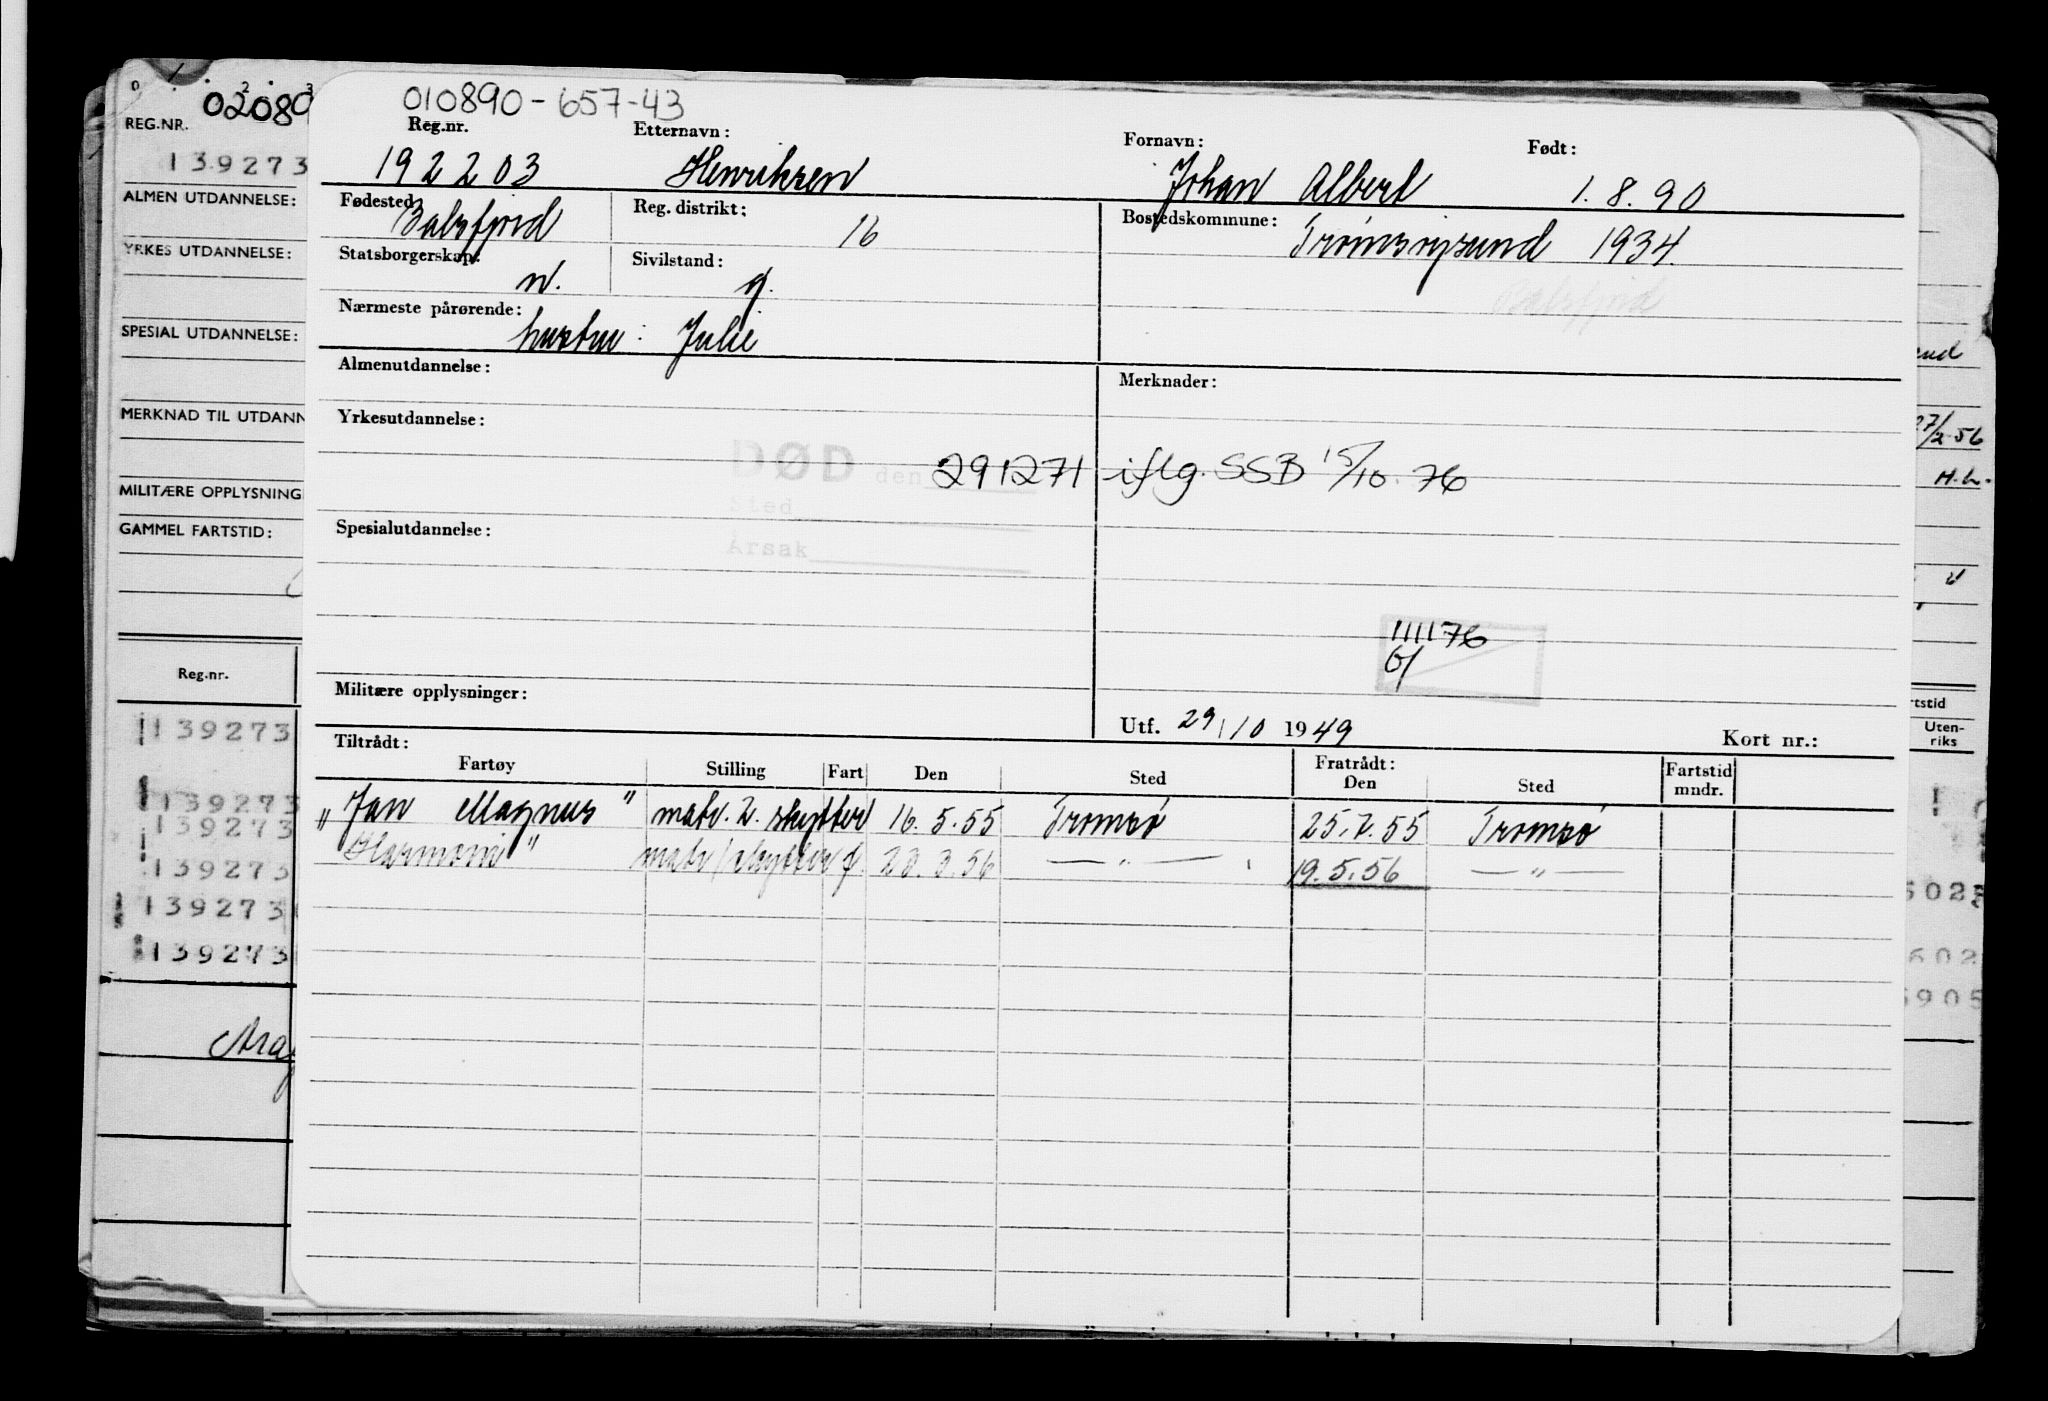 020803
REG.NR.
139273
ALMEN UTDANNELSE:
YRKES UTDANNELSE:
SPESIAL UTDANNELSE:
MERKNAD TIL UTDANN
MILITÆRE OPPLYSNING
GAMMEL FARTSTID:
Reg.nr.
139273
139273
139273
139273
139273
139273
010890-657-43
Reg.nr. Etternavn: Fornavn: Født:
192203 Henriksen Johan Albert 1.8.90
Fødested Reg. distrikt: Bostedskommune:
Balsfjord 16 Tromsøysund 1934.
Statsborgerskap: Sivilstand:
n. g.
Balsfjord
Nærmeste pårørende:
hustru: Julie
Almenutdannelse: Merknader:
Yrkesutdannelse:
DØD den 291271 iflg. SSB 15/10.76
Sted
Årsak
Spesialutdannelse:
111176
Militære opplysninger:
Utf. 29/10 1949 Kort nr.:
Tiltrådt: Fratrådt:
Fartøy Stilling Fart Den Sted Den Sted Fartstid mndr.
"Jan Magnus" matr. 2. skytter 16.5.55 Tromsø 25.7.55 Tromsø
Harmoni" matr/skytter f. 20.3.56 — " — 19.5.56 — " —
27/2-56
H.L.
rtstid
Uten-
riks
602